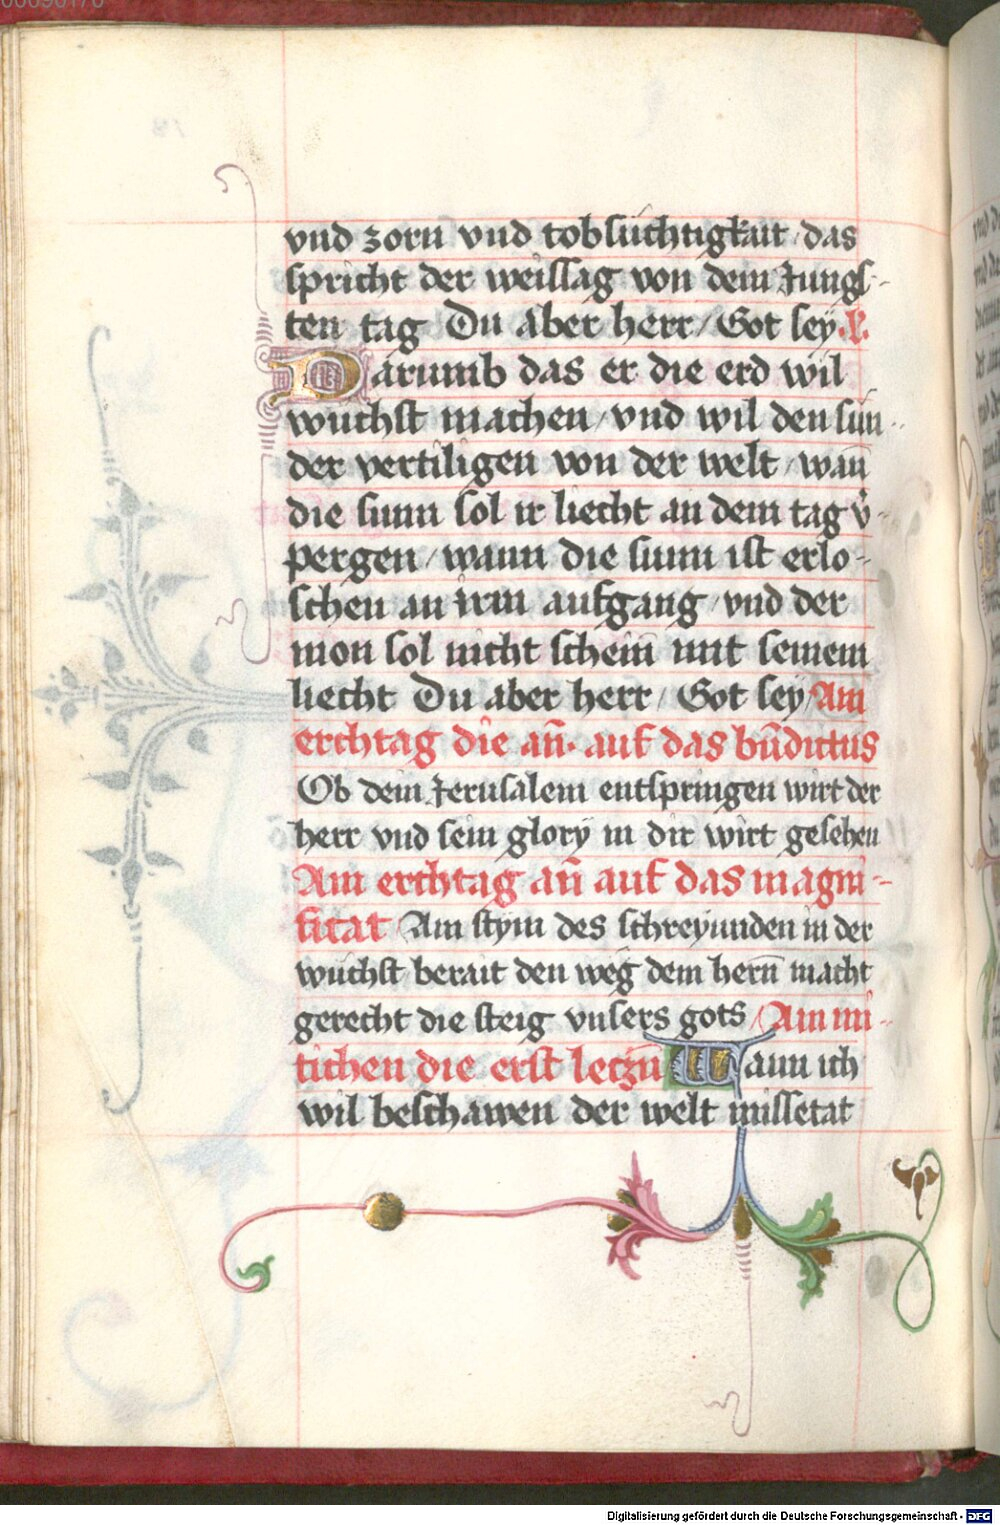 vnd zorn vnd tobsüchtigkait / das
spricht der weissag von dem Jungs-
ten tag Du aber herr / Got sey .V.
Darumb das er die erd wil
wüchst machen / vnd wil den sün
der vertiligen von der welt / wan̄
die sunn sol ir liecht an dem tag v̊-
pergen / wann die sunn ist erlo-
schen an irm aufgang / vnd der
mon sol nicht schein̄ mit seinem
liecht Du aber herr / Got sey / Am
erchtag die an̄. auf das bn̄dictus
Ob dem Jerusalem entspringen wirt der
herr vnd sein glorÿ in dir wirt gesehen
Am erchtag an̄ auf das magni-
ficat Am stÿm des schreÿunden in der
wüchst berait den weg dem hern̄ macht
gerecht die steig vnsers gots / Am mi-
tichen die erst leczn̄ Wann ich
wil beschawen der welt missetat
Digitalisierung gefördert durch die Deutsche Forschungsgemeinschaft - DFG